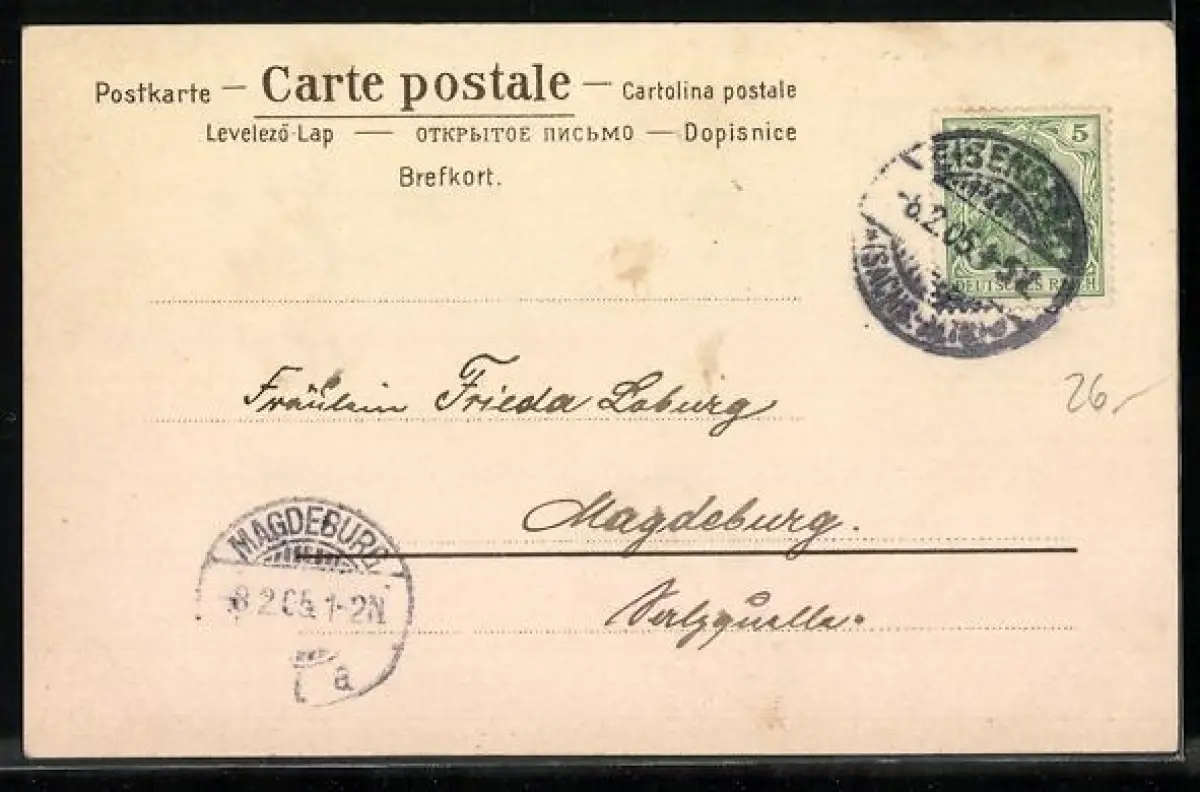 Postkarte — Carte postale — Cartolina postale
Levelező-Lap — ОТКРЫТОЕ ПИСЬМО — Dopisnice
Brefkort.
5
DEUTSCHES REICH
-6.2.05
Fräulein Frieda Loburg
26,-
Magdeburg.
Salzquelle.
MAGDEBURG
8 2 05 1-2N
a